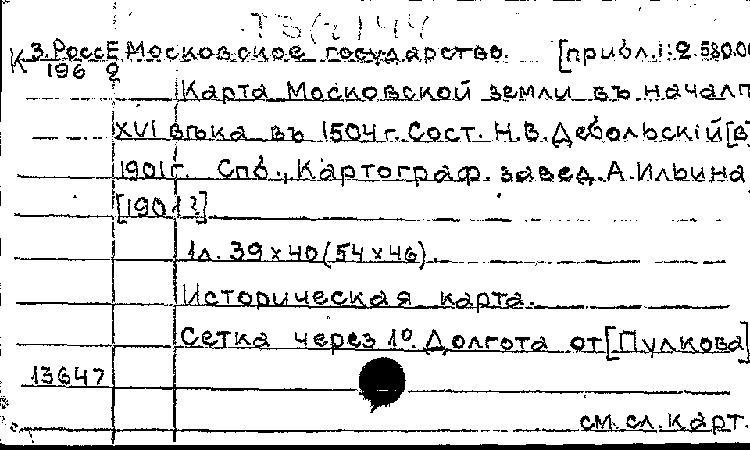 Т3(2)44
К 3.РоссЕ Московское государство. [прибл.1:2.580.00
196 2
Карта Московской земли въ началѣ
XVI вѣка въ 1504г. Сост. Н.В.Дебольскій[в
1901г. Спб., Картограф. завед. А.Ильина
[1901?]
1л. 39×40(54×46).
Историческая карта.
Сетка через 1º. Долгота от[Пулкова]
13647
см. сл. карт.